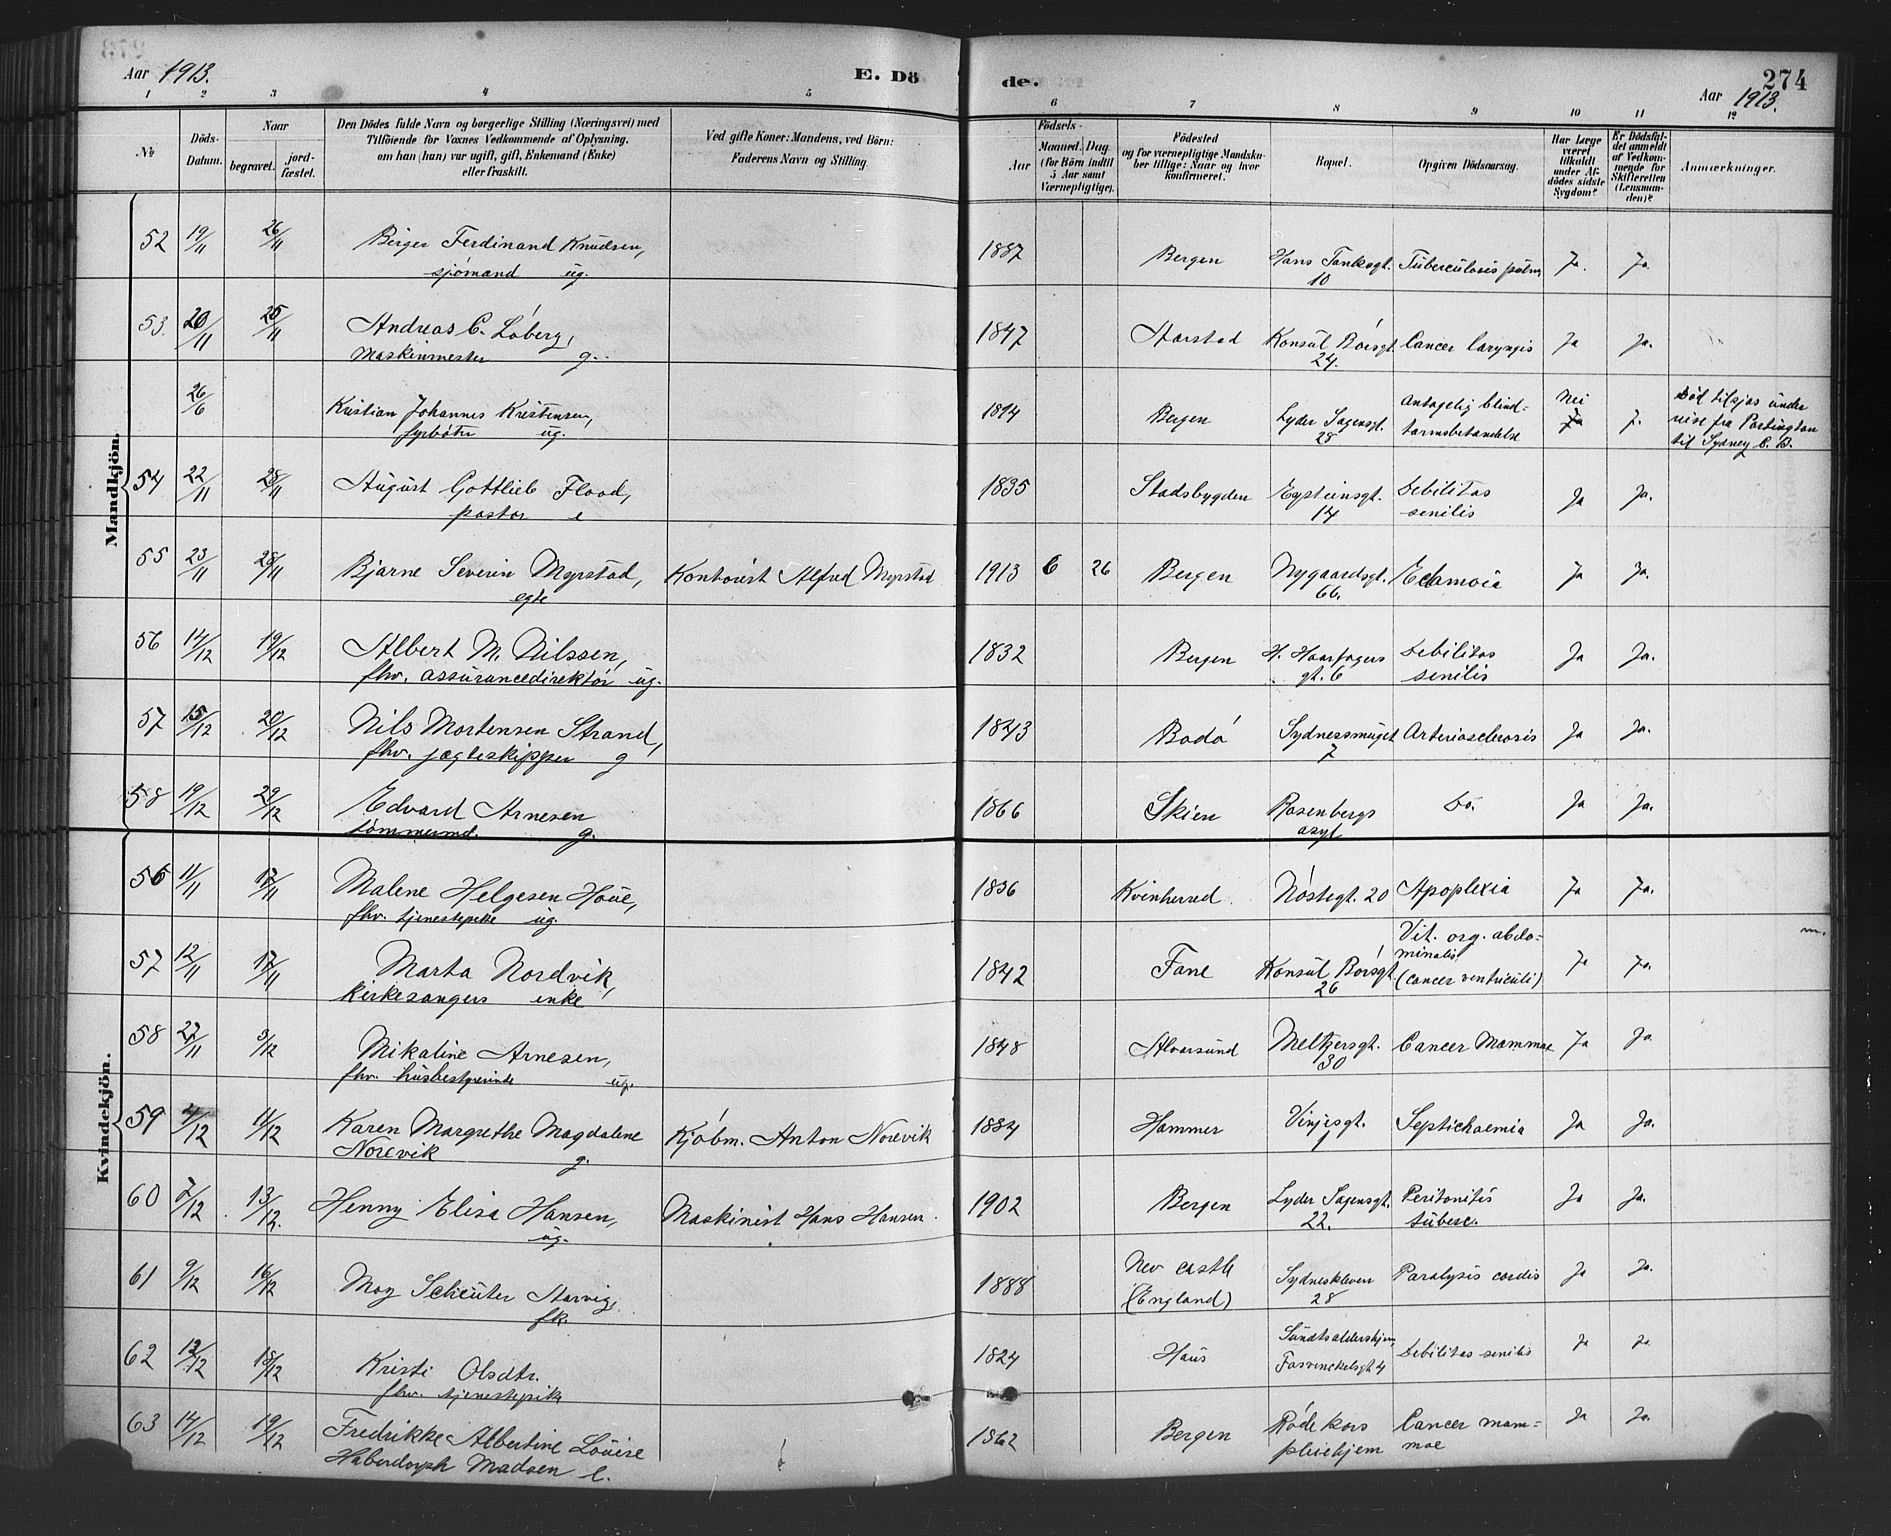 Aar 1913.
E. Dö
de.
274
Aar 1913.
1 2 3 4 5 6 7 8 9 10 11 12
№
Döds-
Datum.
Naar
begravet.
jord-
fæstet.
Den Dödes fulde Navn og borgerlige Stilling (Næringsvei) med
Tilföiende for Voxnes Vedkommende af Oplysning,
om han (hun) var ugift, gift, Enkemand (Enke)
eller fraskilt.
Ved gifte Koner: Mandens, ved Börn:
Faderens Navn og Stilling.
Födsels-
Aar
Maaned. Dag
(for Börn indtil
5 Aar samt
Værnepligtige).
Födested
og for værnepligtige Mandskaber
tillige: Naar og hvor
konfirmeret.
Bopæl.
Opgiven Dödsaarsag.
Har Læge
været
tilkaldt
under Af-
dödes sidste
Sygdom?
Er Dödsfal-
det anmeldt
af Vedkom-
mende for
Skifteretten
(Lensman-
den)?
Anmærkninger.
Mandkjön.
52 19/11 26/11 Birger Ferdinand Knudsen, 1887 Bergen Hans Tanksgt. Tuberculosis pulm Ja. Ja.
sjømand ug. 10
53. 20/11 25/11 Andreas C. Løberg, 1847 Harstad Konsul Børsgt. Cancer laryngis Ja Ja.
Maskinmester g. 24.
26/6 Kristian Johannes Kristensen, 1894 Bergen Lyder Sagensgt. Antagelig blind- Nei J. Død tilsjøs under
fyrbøter ug. 28 tarmsbetændelse Ja reise fra Portington
til Sydney C. B.
54 22/11 28/11 August Gottlieb Flood, 1835 Stadsbygden Eysteinsgt. Debilitas Ja Ja.
pastor e 14 senilis
55 23/11 28/11 Bjarne Severin Myrstad, Kontorist Alfred Myrstad 1913 6 26 Bergen Nygaardsgt. Eclamsia Ja Ja.
egte 66.
56 14/12 19/12 Albert M. Nilssen, 1832 Bergen H. Haarfagers Debilitas Ja Ja.
fhv. assurancedirektør ug. gt. 6 senilis
57 15/12 20/12 Nils Mortensen Strand, 1843 Bodø Sydnessmuget Arteriosclerosis Ja Ja.
fhv. jægteskipper g 7
58 19/12 29/12 Edvard Arnesen 1866 Skien Rosenbergs Do. Ja Ja.
tømmermd. g. asyl
Kvindekjön.
56 11/11 17/11 Malene Helgesen Hove, 1836 Kvinherred. Nøstegt. 20 Apoplexia Ja Ja.
fhv. tjenestepike ug.
57 12/11 17/11 Marta Nordvik, 1842 Fane Konsul Børsgt. Vit. org. abdo- Ja Ja.
kirkesangers enke 26 minalis
(cancer ventriculi)
58 27/11 3/12 Mikaline Arnesen, 1848 Alversund Meltzersgt. Cancer Mammae Ja Ja.
fhv. husbestyrerinde ug. 30
59 4/12 11/12 Karen Margrethe Magdalene Kjøbm. Anton Norevik 1884 Hammer Vinjesgt. Septichaemia Ja Ja.
Norevik g. 1
60 7/12 13/12. Henny Elisa Hansen, Maskinist Hans Hansen. 1902 Bergen Lyder Sagensgt. Peritonitis Ja Ja.
ug. 22. tuberc.
61 9/12 16/12 May Schlüter Aarvig, 1888 New castle Sydneskleven Paralysis cordis Ja Ja.
fk. (England) 28
62 12/12 18/12 Kristi Olsdtr. 1824 Haus Sundtsaldershjem Debilitas senilis Ja Ja.
fhv. tjenestepike Fosvinckelsgt 4
63 14/12 19/12 Fredrikke Albertine Lovise 1862 Bergen Røde kors Cancer mam- Ja Ja.
Haberdorph Madsen e. pleiehjem mae